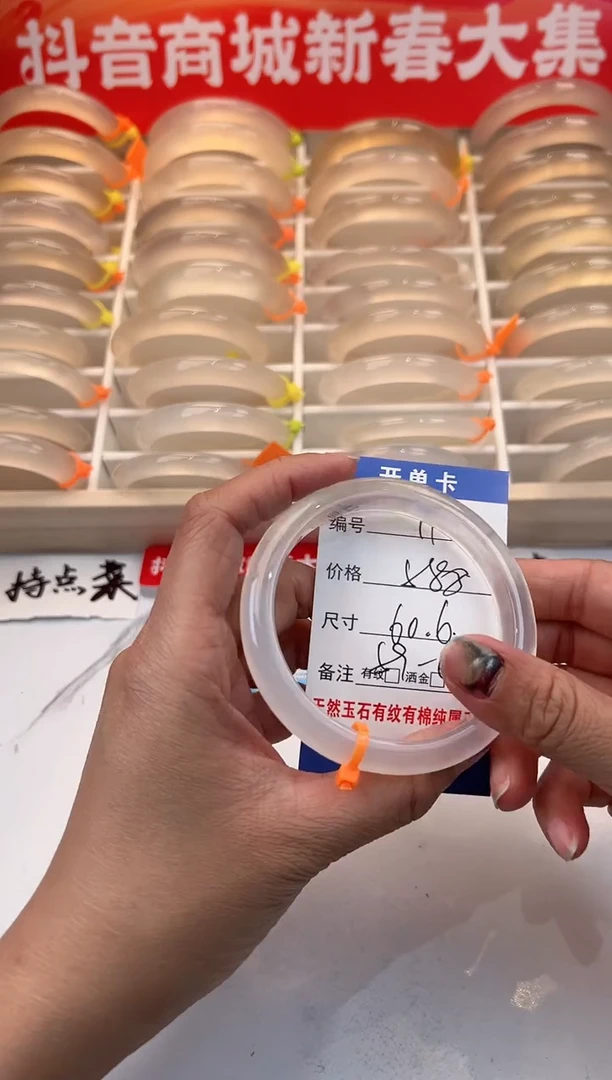 抖音商城新春大集
开单卡
编号 11
价格
尺寸 60.6
备注 有纹 洒金
天然玉石有纹有棉纯属
持点菜